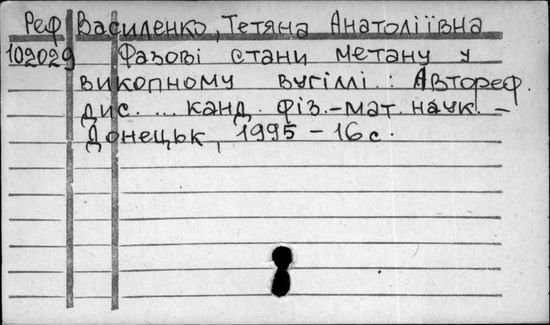 Реф Василенко, Тетяна Анатоліївна
102029 Фазові стани метану у
викопному вугіллі : Автореф.
дис. ... канд. фіз.-мат. наук. -
Донецьк, 1995 - 16 с.